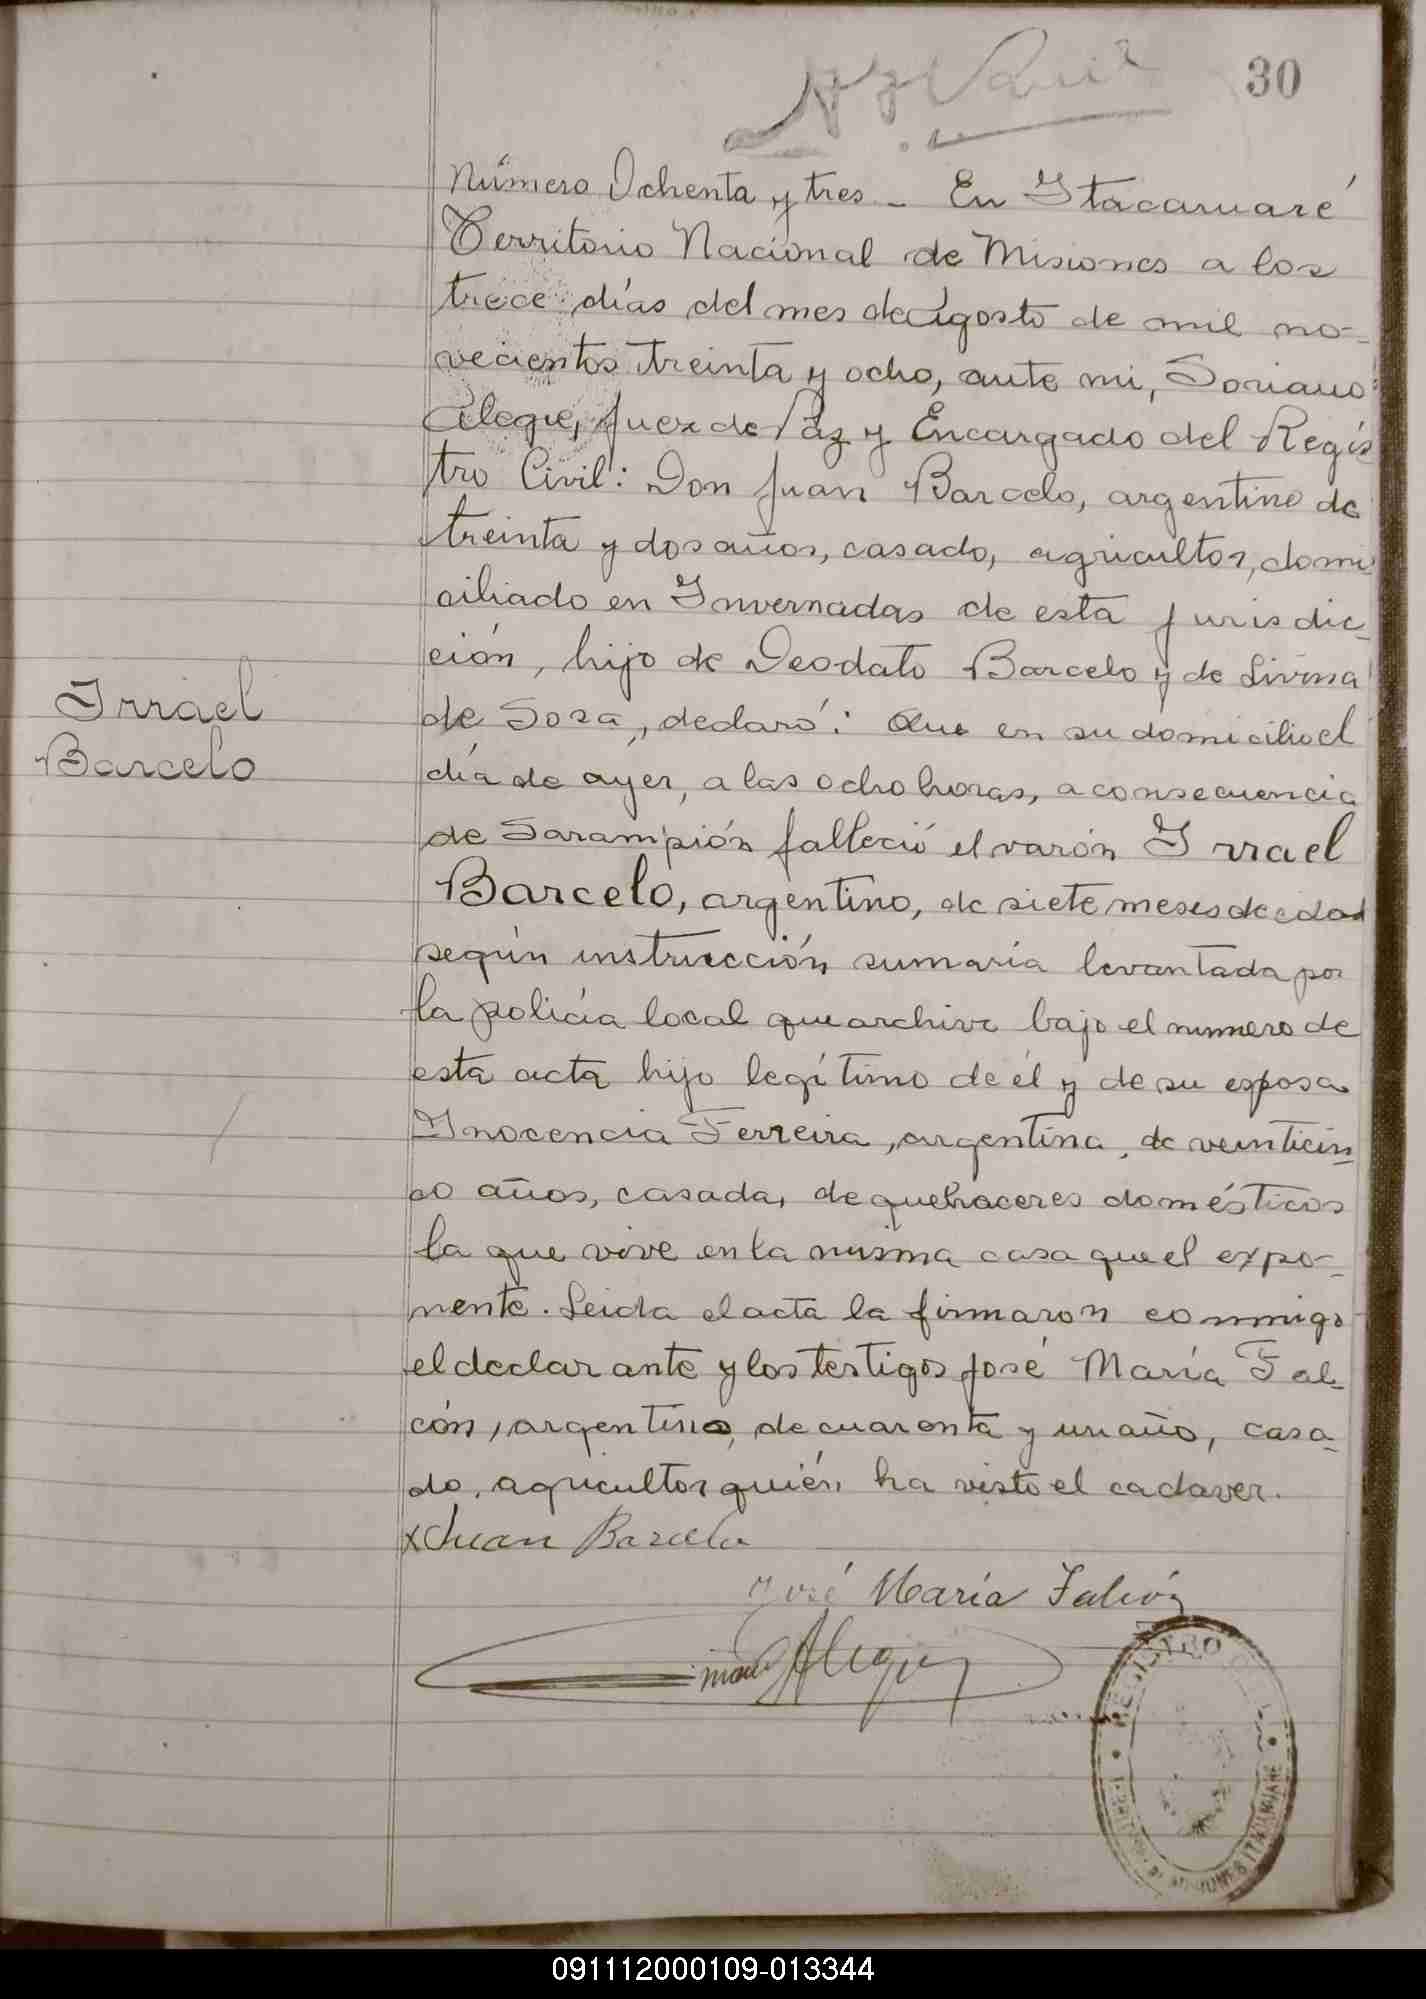 30
Número Ochenta y tres - En Itacaruaré
Territorio Nacional de Misiones a los
trece días del mes de Agosto de mil no-
vecientos treinta y ocho, ante mi, Soriano
Alegre, Juez de Paz y Encargado del Regis
tro Civil: Don Juan Barcelo, argentino de
treinta y dos años, casado, agricultor, domi
ciliado en Invernadas de esta jurisdic-
ción, hijo de Deodato Barcelo y de Livina
de Sosa, declaró: Que en su domicilio el
Irrael
Barcelo
día de ayer, a las ocho horas, a consecuencia
de Sarampión falleció el varón Irrael
Barcelo, argentino, de siete meses de edad
según instrucción sumaria levantada por
la policía local que archivo bajo el numero de
esta acta hijo legítimo de él y de su esposa
Inocencia Ferreira, argentina, de veinticin-
co años, casada, de quehaceres domésticos
la que vive en la misma casa que el expo-
nente. Leida el acta la firmaron conmigo
el declarante y los testigos José María Fal-
cón, argentino, de cuarenta y un año, casa-
do, agricultor quién ha visto el cadaver.
x Juan Barcelo
José María Falcón
Alegre
REGISTRO CIVIL
ITACARUARÉ
091112000109-013344